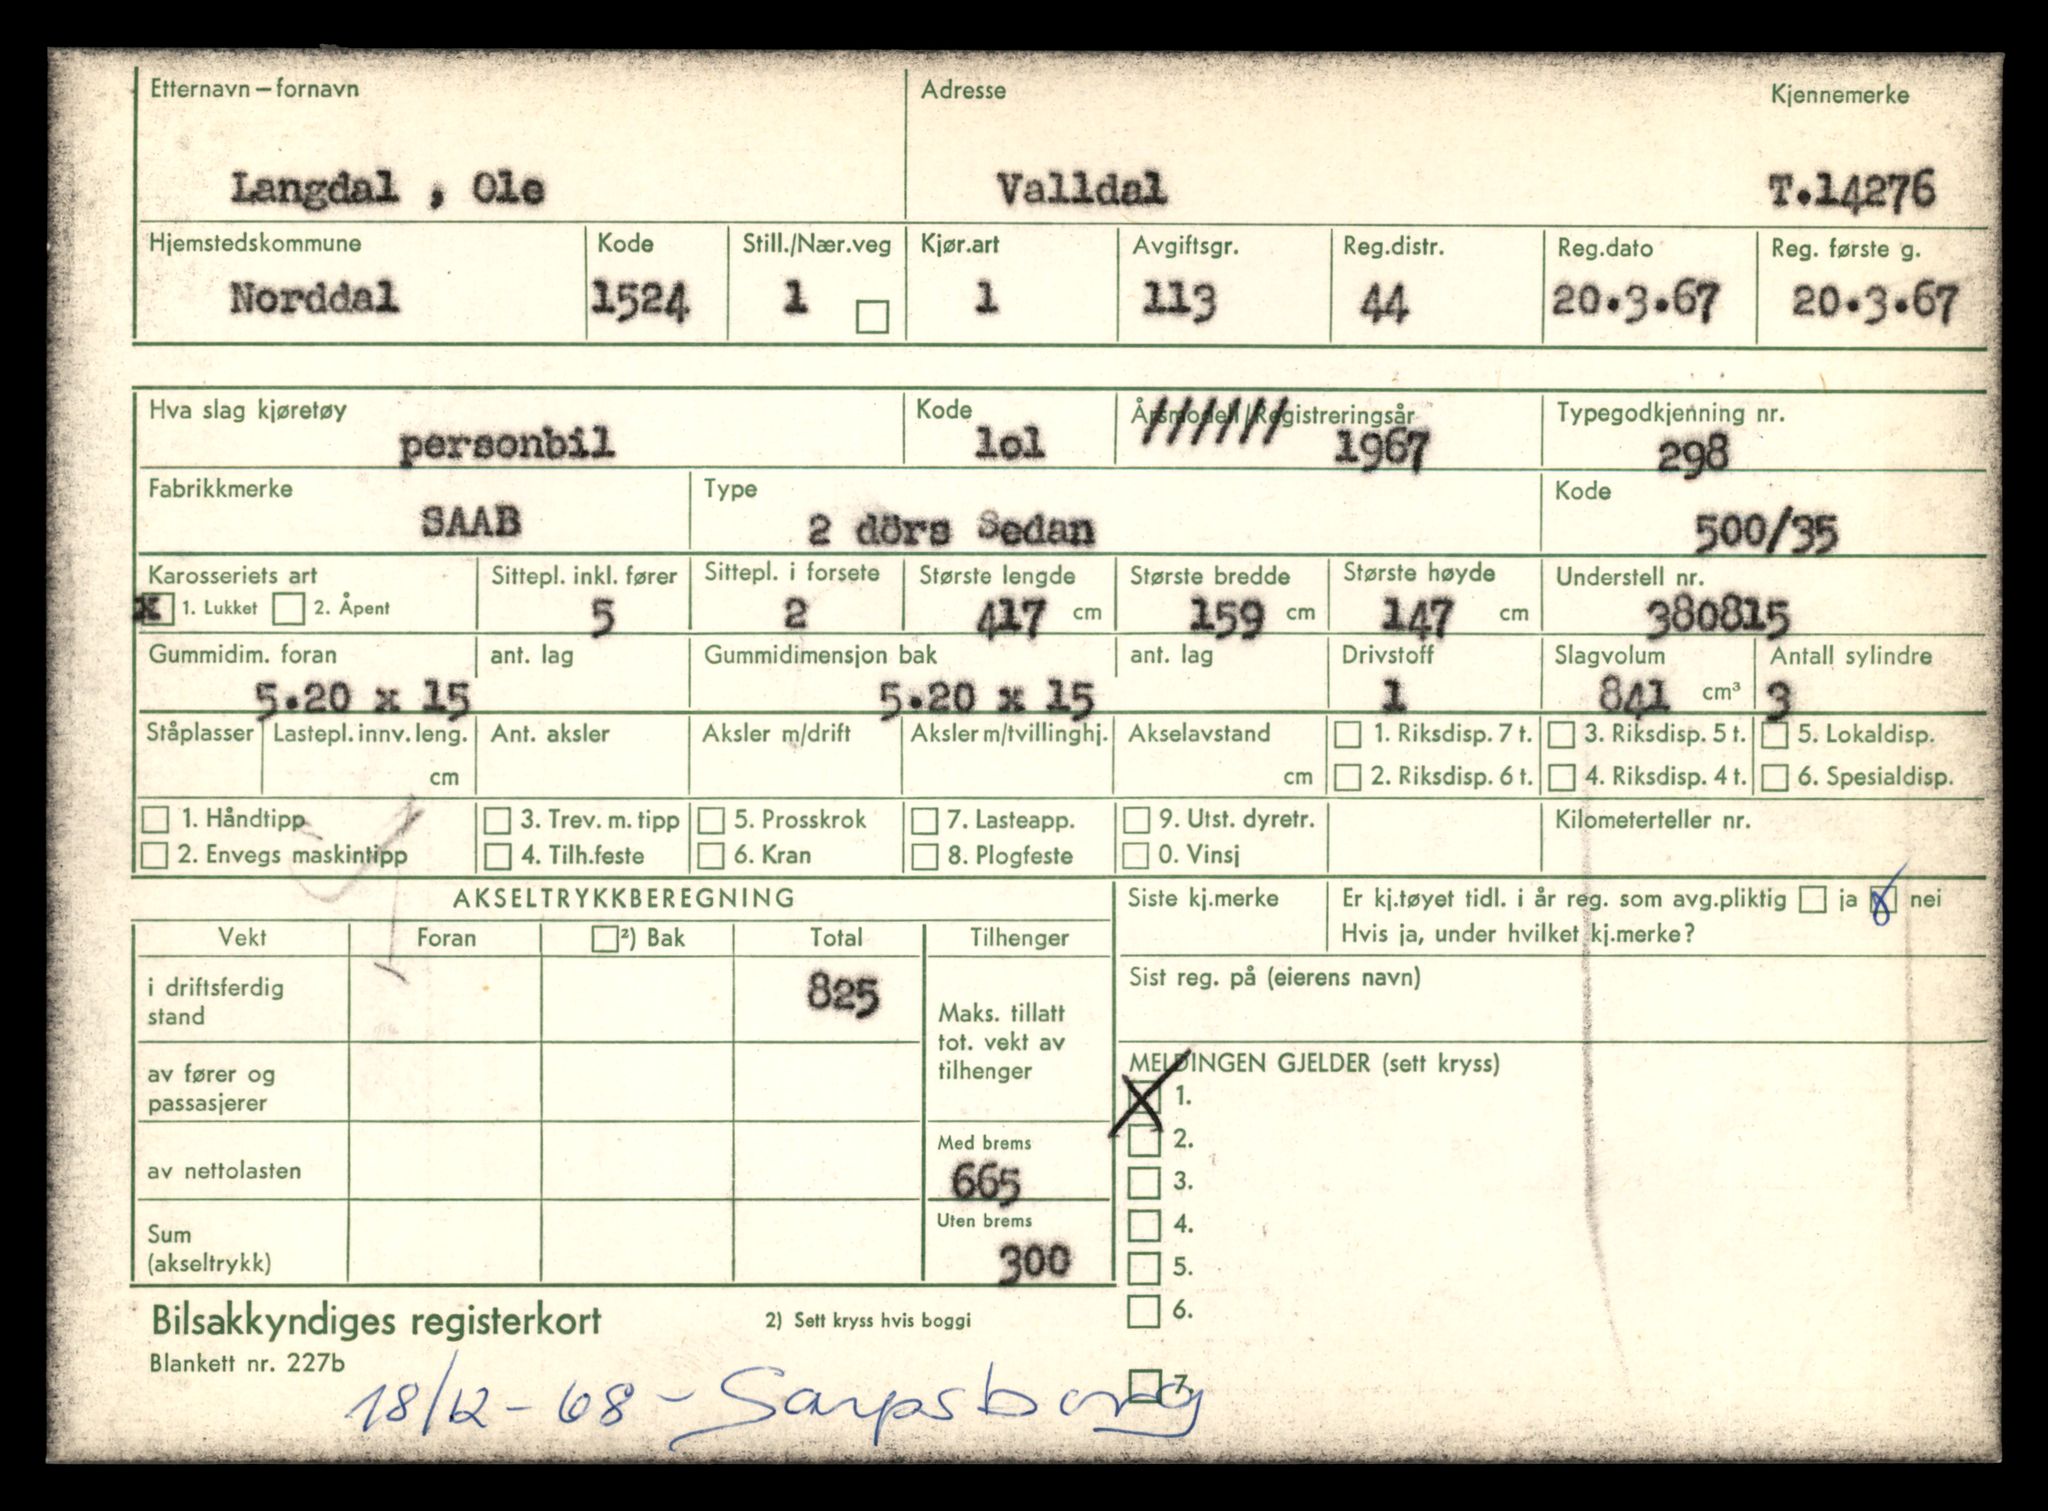 Etternavn – fornavn Adresse Kjennemerke
Langdal , Ole Valldal T.14276
Hjemstedskommune Kode Still./Nær.veg Kjør.art Avgiftsgr. Reg.distr. Reg.dato Reg. første g.
Norddal 1524 1 1 113 44 20.3.67 20.3.67
Hva slag kjøretøy Kode Årsmodell/Registreringsår Typegodkjenning nr.
personbil lol ////// 1967 298
Fabrikkmerke Type Kode
SAAB 2 dörs Sedan 500/35
Karosseriets art Sittepl. inkl. fører Sittepl. i forsete Største lengde Største bredde Største høyde Understell nr.
x 1. Lukket 2. Åpent 5 2 417 cm 159 cm 147 cm 380815
Gummidim. foran ant. lag Gummidimensjon bak ant. lag Drivstoff Slagvolum Antall sylindre
5.20 x 15 5.20 x 15 1 841 cm³ 3
Ståplasser Lastepl. innv. leng. Ant. aksler Aksler m/drift Aksler m/tvillinghj. Akselavstand 1. Riksdisp. 7 t. 3. Riksdisp. 5 t. 5. Lokaldisp.
cm cm 2. Riksdisp. 6 t. 4. Riksdisp. 4 t. 6. Spesialdisp.
1. Håndtipp 3. Trev. m. tipp 5. Prosskrok 7. Lasteapp. 9. Utst. dyretr. Kilometerteller nr.
2. Envegs maskintipp 4. Tilh.feste 6. Kran 8. Plogfeste 0. Vinsj
AKSELTRYKKBEREGNING Siste kj.merke Er kj.tøyet tidl. i år reg. som avg.pliktig ja x nei
Hvis ja, under hvilket kj.merke?
Vekt Foran ²) Bak Total Tilhenger
i driftsferdig stand 825
Sist reg. på (eierens navn)
Maks. tillatt tot. vekt av tilhenger
av fører og passasjerer
MELDINGEN GJELDER (sett kryss)
X 1.
2.
Med brems
av nettolasten 665
3.
Uten brems
4.
Sum (akseltrykk) 300
5.
6.
Bilsakkyndiges registerkort 2) Sett kryss hvis boggi
Blankett nr. 227b
7.
18/12-68 - Sarpsborg